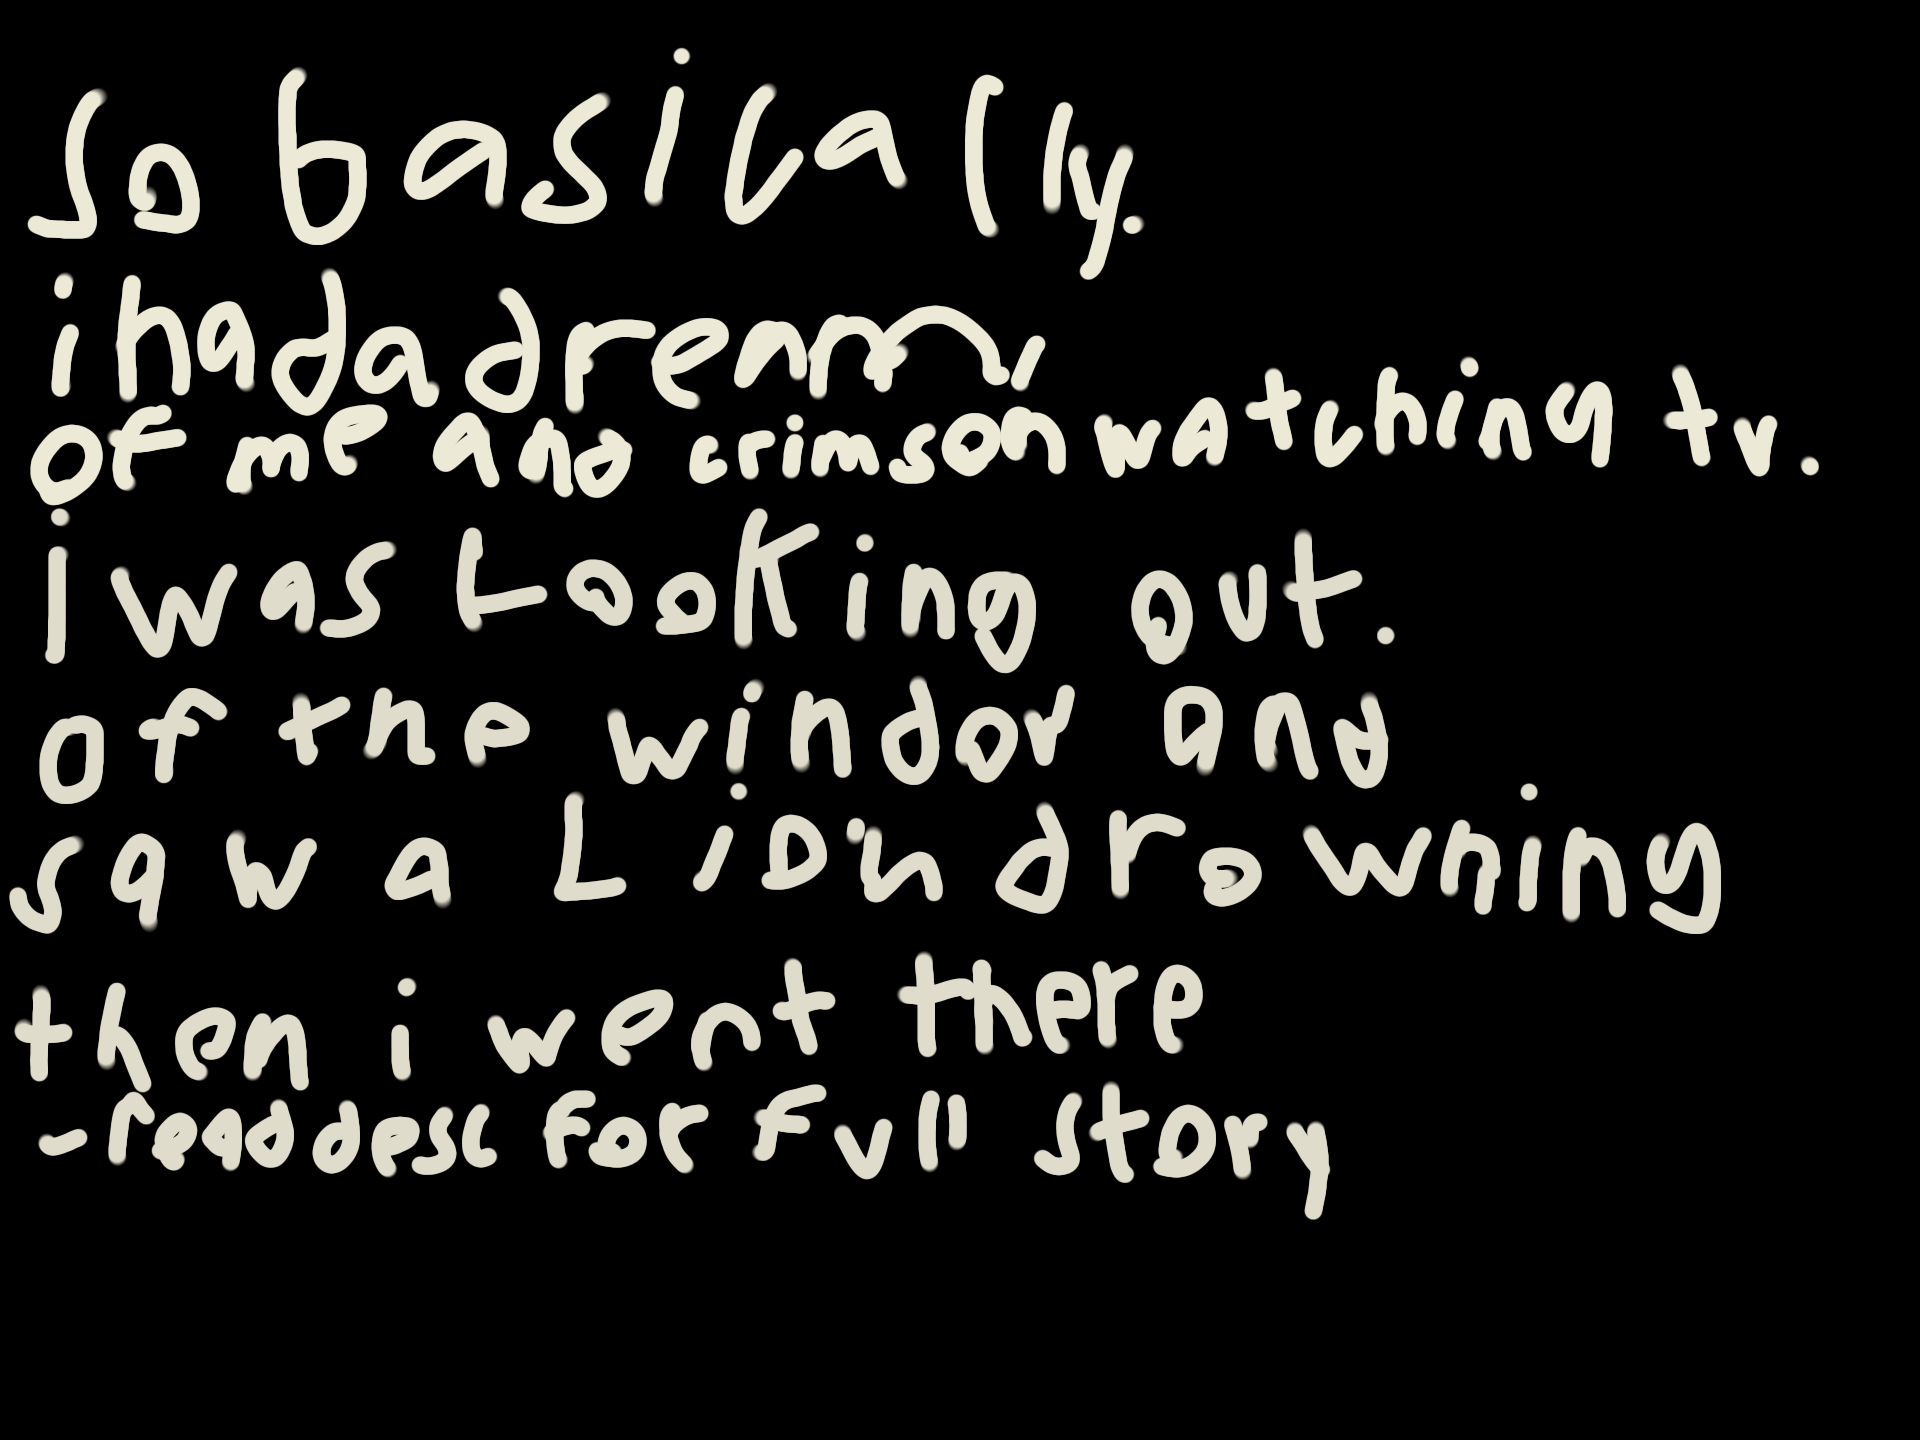 So basically.
i had a drenm,
of me and crimson watching tv.
I was Looking out.
of the windor and
saw a Lion drowning
then i went there
- read desc for full story